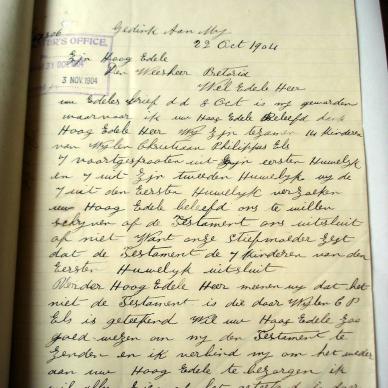 Gedink Aan My
22 Oct 1904
TER'S OFFICE,
3 NOV. 1904
Zijn Hoog Edele
Den Weesheer Pretoria
Wel Edele Heer
uw Edeles brief d d 8 Oct is my geworden
waarvoor ik uw Hoog Edele Beleefd dank
Hoog Edele Heer Wy Zyn tezamen kinderen
van Wylen Christiaan Philippus Els
7 voortgesprooten uit Zyn eersten Huwelyk
en 7 uit Zyn tweeden Huwelyk wy de
7 uit den Eersten Huwelyk verzoeken
uw Hoog Edele beleefd ons te willen
schryven of de Testament ons uitsluit
of niet Want onze Stiefmoeder Zegt
dat de Testament de 7 kinderen van den
Eersten Huwelyk uitsluit
Verder Hoog Edele Heer meenen wy dat het
niet de Testament is die door Wylen C P
Els is geteekend Wil uw Hoog Edele Zoo
goed wezen om my den Testament te
Zenden en ik verbind my om het weder
aan uw Hoog Edele te bezorgen ik